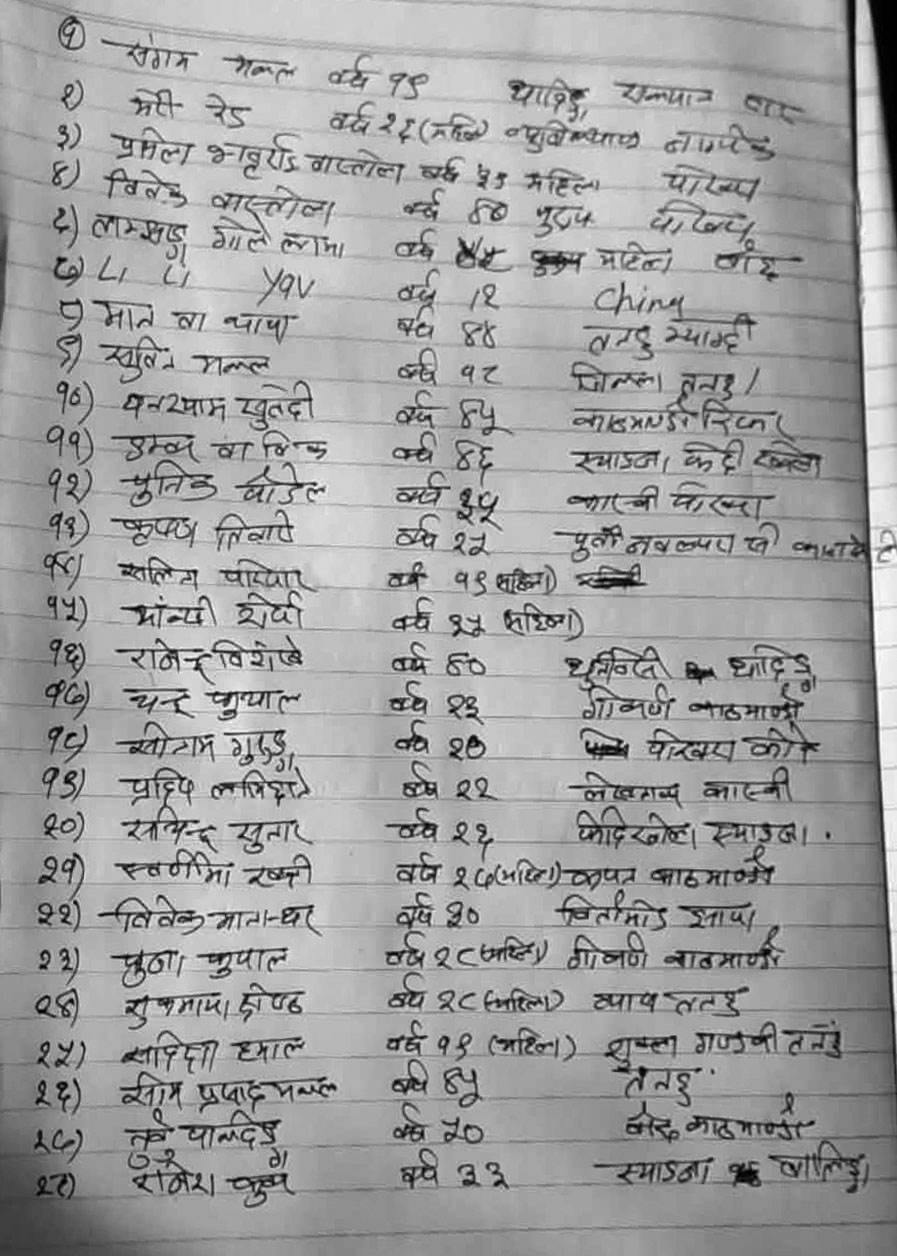 १) संगम मल्ल वर्ष १९ धादिङ्ग,
२) मेरी रेड वर्ष २६ (महिला)
३) प्रमिला भट्टराई वास्तोला वर्ष ३९ महिला पोखरा
४) विवेक वास्तोला वर्ष ४७ पुरुष पोखरा
६) लामखाङ्ग गोले लामा वर्ष महिला
७) Li Li yav वर्ष १२ China
८) मान वा थापा वर्ष ४४ तनहु म्याग्दी
९) सुविन मल्ल वर्ष १८ जिल्ला तनहु।
१०) घनश्याम खुलदी वर्ष ४५
११) डम्बर वा विक वर्ष ४६ स्याङजा, फेदी खोला
१२) पुनित पौडेल वर्ष ३५ कास्की पोखरा
१३) कृष्ण तिवारी वर्ष २५ पुर्वी नवलपरासी
१४) सलिना परियार वर्ष १९ (महिला)
१५) मान्वी शेर्पा वर्ष ३५ (महिला)
१६) राजेन्द्र विशंखे वर्ष ४० धुनिवेसी धादिङ्ग
१७) चन्द्र फुयाल वर्ष २३ गोकर्ण काठमाण्डौ
१८) सोनाम गुरुङ्ग वर्ष २७ पोखरा
१९) प्रदिप लामिछाने वर्ष २२ लेखनाथ कास्की
२०) रविन्द्र सुनार वर्ष २६ फेदिखोला स्याङजा।
२१) स्वर्णिमा रेग्मी वर्ष २७ (महिला) कपन काठमाण्डौ
२२) विवेक मानन्धर वर्ष ३० विर्तामोड झापा
२३) फुना फुयाल वर्ष २८ (महिला) गोकर्ण काठमाण्डौ
२४) सुकमाया श्रेष्ठ वर्ष २८ (महिला) व्यास तनहु
२५) सदिक्षा हमाल वर्ष १९ (महिला) शुक्ला गण्डकी तनहुँ
२६) सोम प्रसाद मल्ल वर्ष ४५ तनहु
२७) वर्ष ५० बौद्ध काठमाण्डौ
२८) रमेश वर्ष ३३ स्याङजा वालिङ्ग।